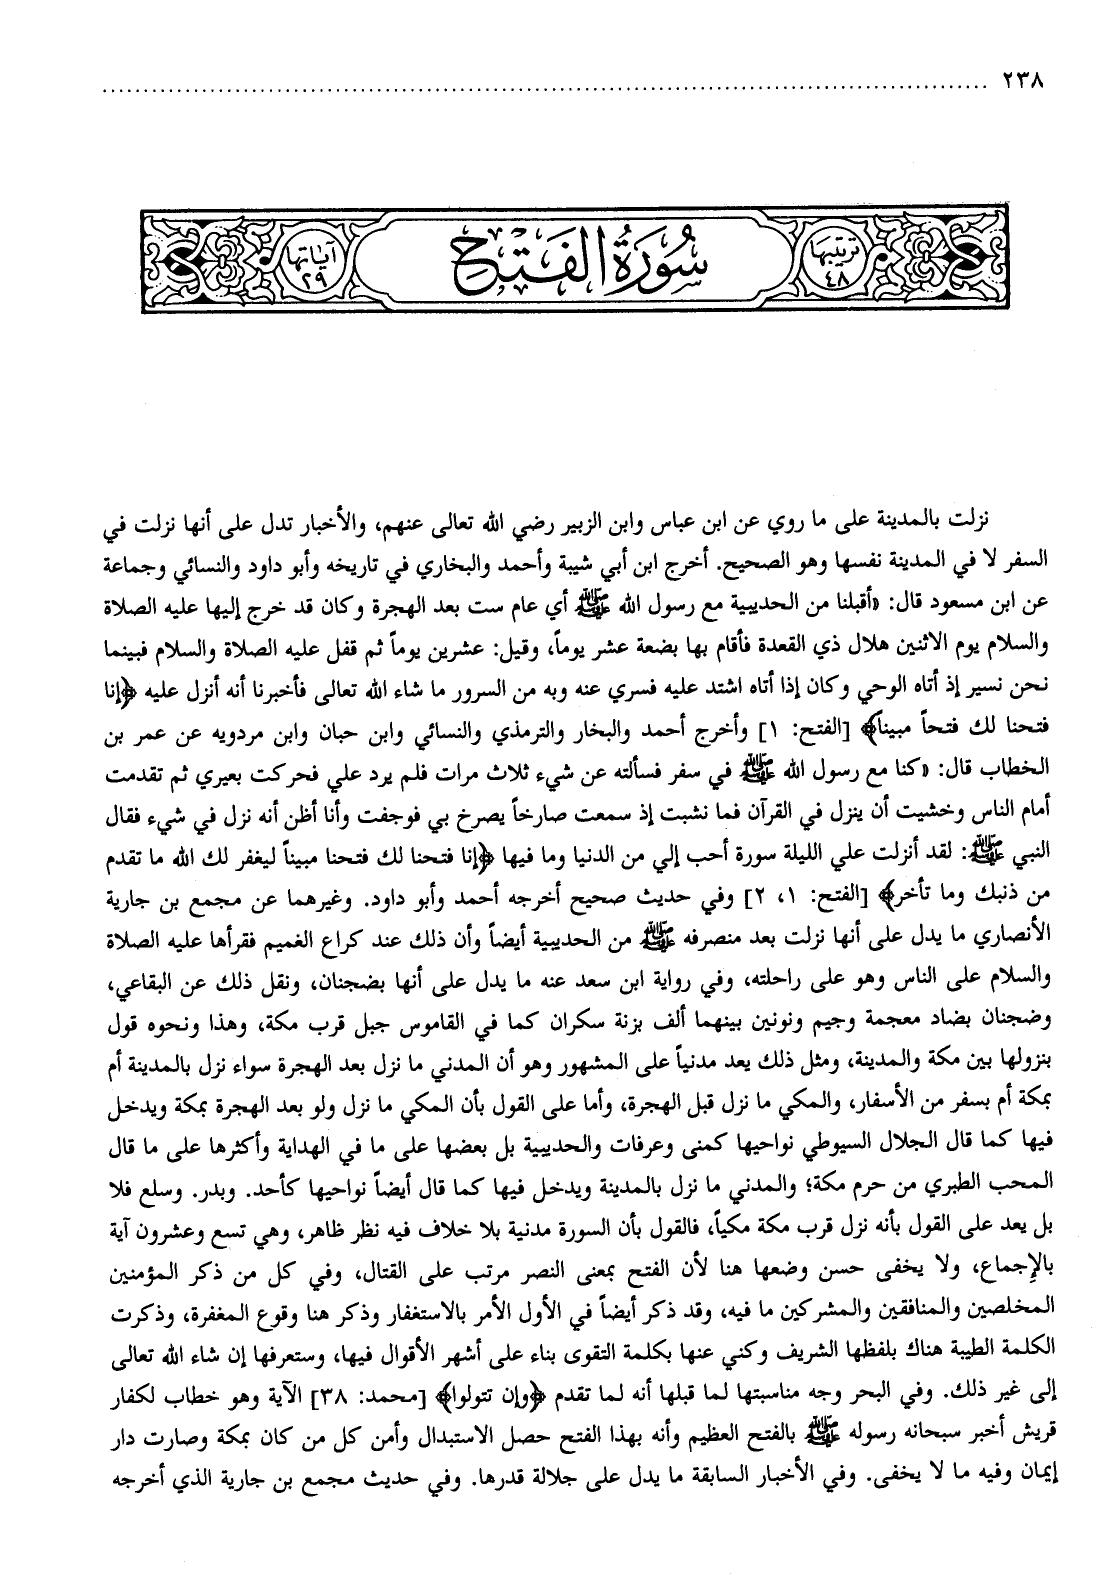 ٢٣٨ ........................................................................
ترتيبها ٤٨ سُورَةُ الفَتْحِ آياتها ٢٩
نزلت بالمدينة على ما روي عن ابن عباس وابن الزبير رضي الله تعالى عنهم، والأخبار تدل على أنها نزلت في
السفر لا في المدينة نفسها وهو الصحيح. أخرج ابن أبي شيبة وأحمد والبخاري في تاريخه وأبو داود والنسائي وجماعة
عن ابن مسعود قال: «أقبلنا من الحديبية مع رسول الله ﷺ أي عام ست بعد الهجرة وكان قد خرج إليها عليه الصلاة
والسلام يوم الاثنين هلال ذي القعدة فأقام بها بضعة عشر يوماً، وقيل: عشرين يوماً ثم قفل عليه الصلاة والسلام فبينما
نحن نسير إذ أتاه الوحي وكان إذا أتاه اشتد عليه فسري عنه وبه من السرور ما شاء الله تعالى فأخبرنا أنه أنزل عليه ﴿إنا
فتحنا لك فتحاً مبيناً﴾ [الفتح: ١] وأخرج أحمد والبخار والترمذي والنسائي وابن حبان وابن مردويه عن عمر بن
الخطاب قال: «كنا مع رسول الله ﷺ في سفر فسألته عن شيء ثلاث مرات فلم يرد علي فحركت بعيري ثم تقدمت
أمام الناس وخشيت أن ينزل في القرآن فما نشبت إذ سمعت صارخاً يصرخ بي فوجفت وأنا أظن أنه نزل في شيء فقال
النبي ﷺ: لقد أنزلت علي الليلة سورة أحب إلي من الدنيا وما فيها ﴿إنا فتحنا لك فتحنا مبيناً ليغفر لك الله ما تقدم
من ذنبك وما تأخر﴾ [الفتح: ١، ٢] وفي حديث صحيح أخرجه أحمد وأبو داود. وغيرهما عن مجمع بن جارية
الأنصاري ما يدل على أنها نزلت بعد منصرفه ﷺ من الحديبية أيضاً وأن ذلك عند كراع الغميم فقرأها عليه الصلاة
والسلام على الناس وهو على راحلته، وفي رواية ابن سعد عنه ما يدل على أنها بضجنان، ونقل ذلك عن البقاعي،
وضجنان بضاد معجمة وجيم ونونين بينهما ألف بزنة سكران كما في القاموس جبل قرب مكة، وهذا ونحوه قول
بنزولها بين مكة والمدينة، ومثل ذلك يعد مدنياً على المشهور وهو أن المدني ما نزل بعد الهجرة سواء نزل بالمدينة أم
بمكة أم بسفر من الأسفار، والمكي ما نزل قبل الهجرة، وأما على القول بأن المكي ما نزل ولو بعد الهجرة بمكة ويدخل
فيها كما قال الجلال السيوطي نواحيها كمنى وعرفات والحديبية بل بعضها على ما في الهداية وأكثرها على ما قال
المحب الطبري من حرم مكة؛ والمدني ما نزل بالمدينة ويدخل فيها كما قال أيضاً نواحيها كأحد. وبدر. وسلع فلا
بل يعد على القول بأنه نزل قرب مكة مكياً، فالقول بأن السورة مدنية بلا خلاف فيه نظر ظاهر، وهي تسع وعشرون آية
بالإجماع، ولا يخفى حسن وضعها هنا لأن الفتح بمعنى النصر مرتب على القتال، وفي كل من ذكر المؤمنين
المخلصين والمنافقين والمشركين ما فيه، وقد ذكر أيضاً في الأول الأمر بالاستغفار وذكر هنا وقوع المغفرة، وذكرت
الكلمة الطيبة هناك بلفظها الشريف وكني عنها بكلمة التقوى بناء على أشهر الأقوال فيها، وستعرفها إن شاء الله تعالى
إلى غير ذلك. وفي البحر وجه مناسبتها لما قبلها أنه لما تقدم ﴿وإن تتولوا﴾ [محمد: ٣٨] الآية وهو خطاب لكفار
قريش أخبر سبحانه رسوله ﷺ بالفتح العظيم وأنه بهذا الفتح حصل الاستبدال وأمن كل من كان بمكة وصارت دار
إيمان وفيه ما لا يخفى. وفي الأخبار السابقة ما يدل على جلالة قدرها. وفي حديث مجمع بن جارية الذي أخرجه